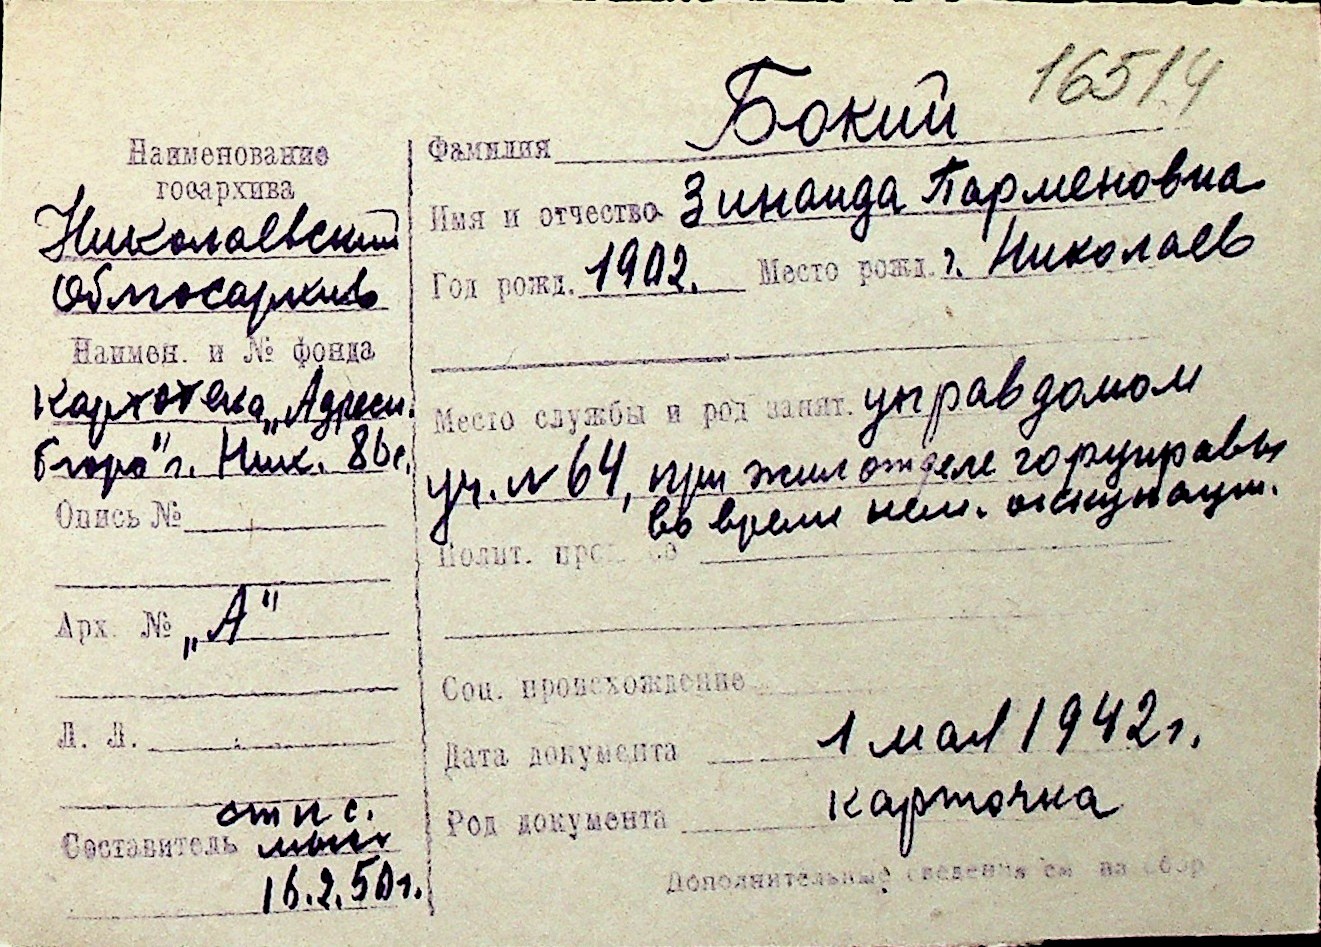 16514
Наименование
госархива
Николаевский
Облгосархив
Наимен. и № фонда
Картотека „Адресн.
бюро" г. Ник. 86с.
Опись №
Арх. № „А"
Л. Л.
Составитель
16.2.50г.
Фамилия Бокий
Имя и отчество Зинаида Парменовна
Год рожд. 1902. Место рожд. г. Николаев
Место службы и род занят. управдомом
уч. № 64, при жилотделе горуправы
во время нем. оккупации.
Полит.
Соц. происхождение
Дата документа 1 мая 1942г.
Род документа карточка
Дополнительные сведения см на обор